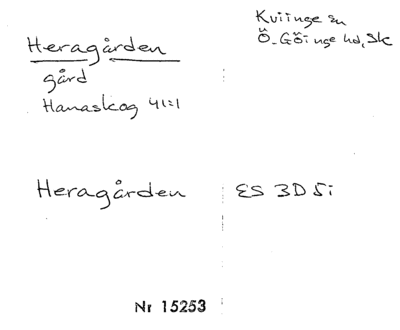 Heragården
Kviinge sn
Ö. Göinge hd, Sk
gård
Hanaskog 41:1
Heragården
ES 3D 5i
Nr 15253